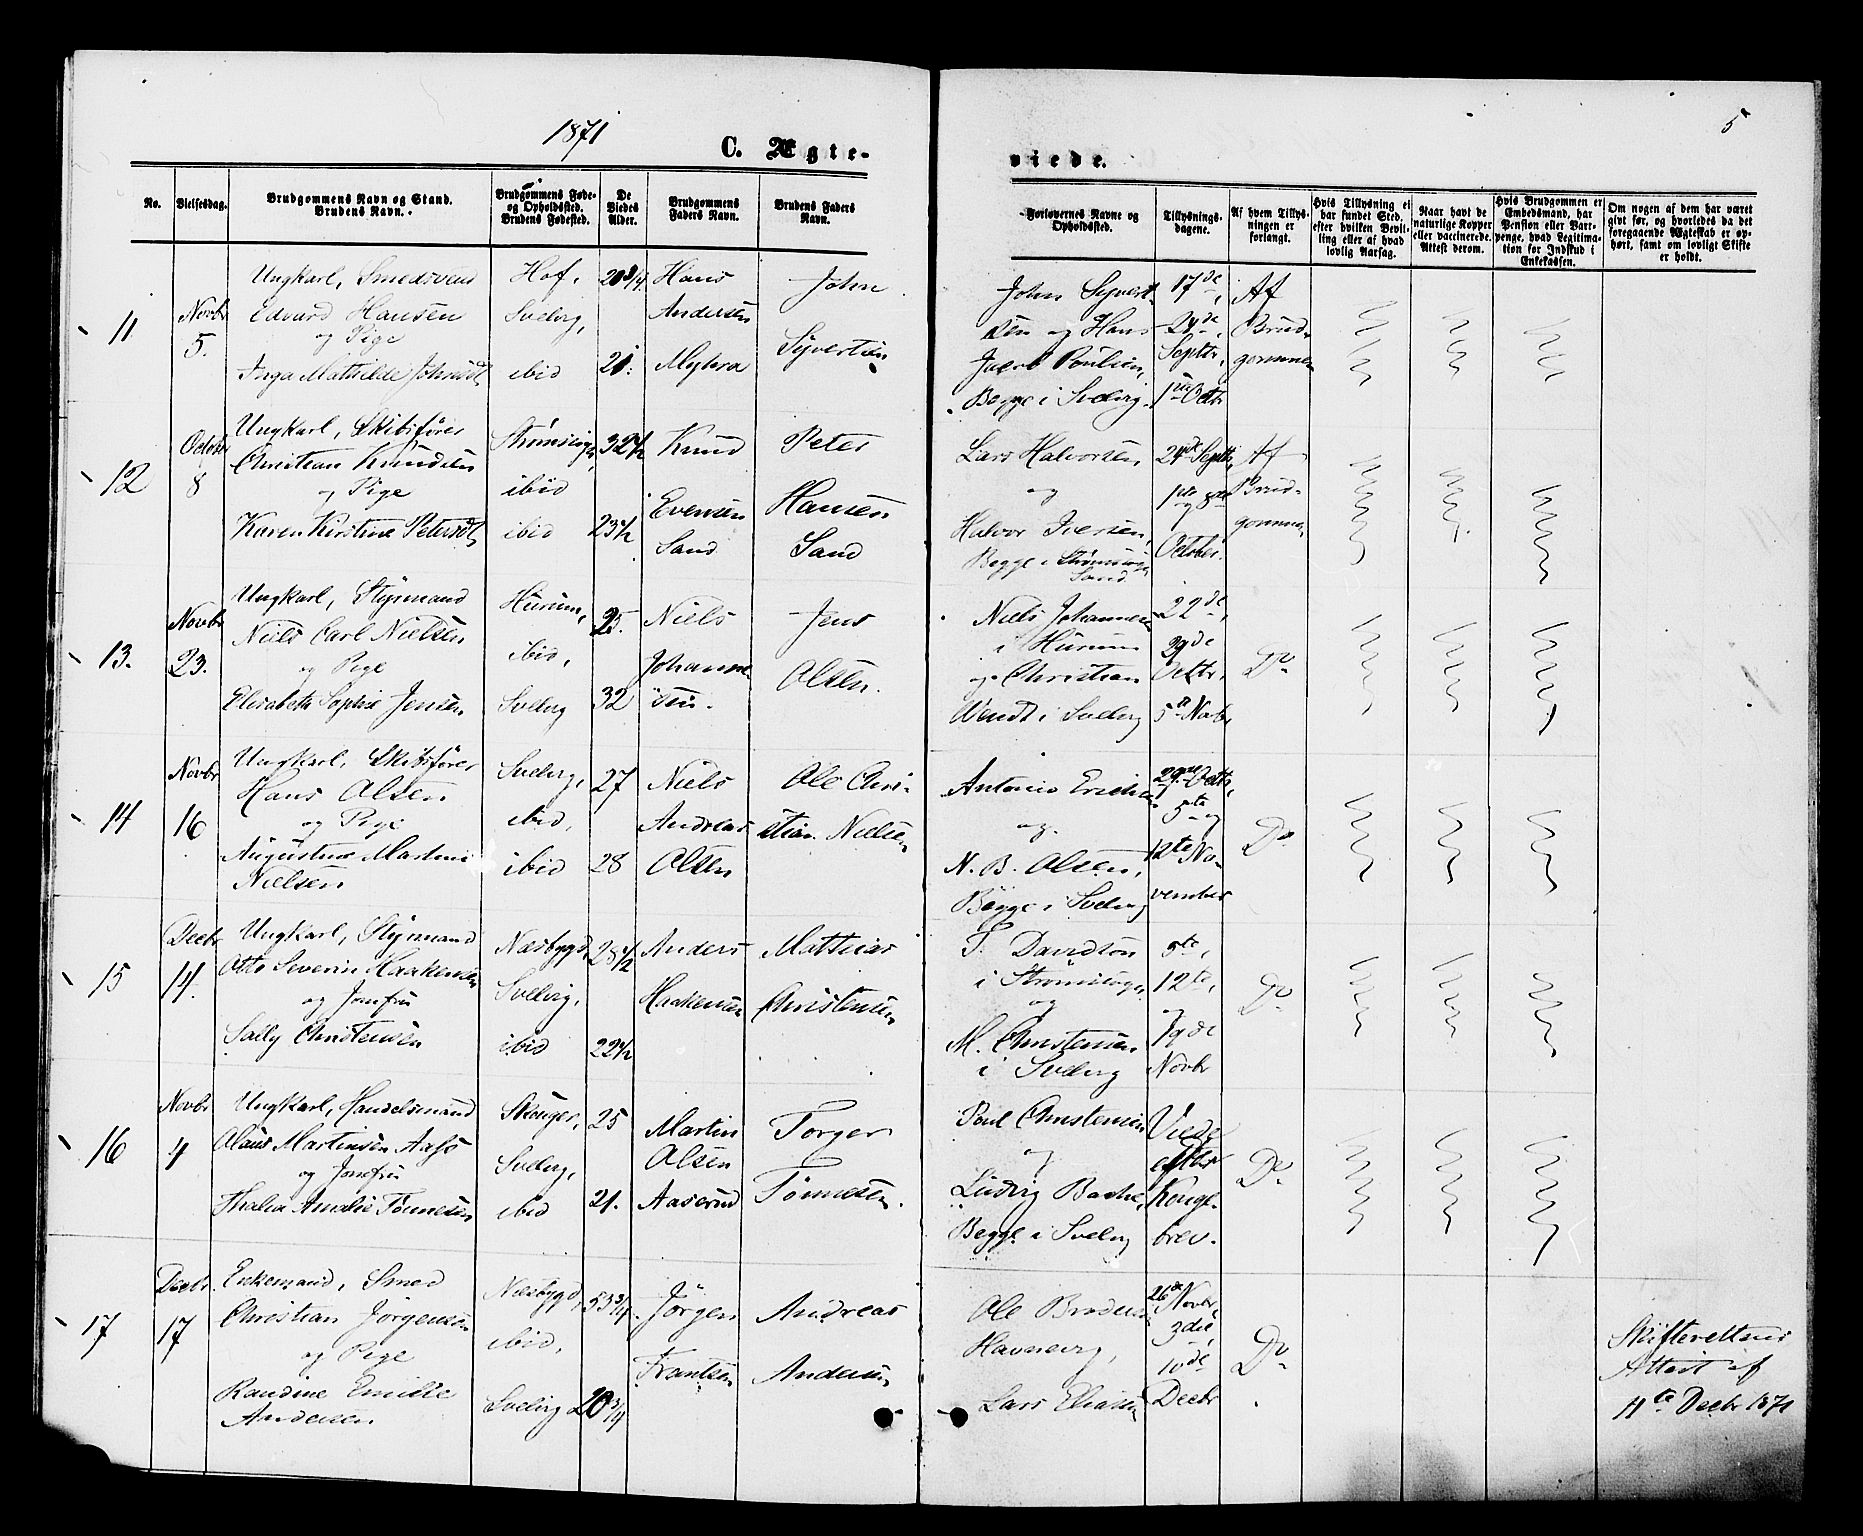 1871
C. Ægte-
viede.
5
No.
Vielsesdag.
Brudgommens Navn og Stand.
Brudens Navn.
Brudgommens Føde-
og Opholdssted.
Brudens Fødested.
De
Viedes
Alder.
Brudgommens
Faders Navn.
Brudens Faders
Navn.
Forlovernes Navne og
Opholdssted.
Tillysnings-
dagene.
Af hvem Tillys-
ningen er
forlangt.
Hvis Tillysning ei
har fundet Sted,
efter hvilken Bevil-
ling eller af hvad
lovlig Aarsag.
Naar havt de
naturlige Kopper
eller vaccinerede.
Attest derom.
Hvis Brudgommen er
Embedsmand, har
Pension eller Vart-
penge, hvad Legitima-
tion for Indskud i
Enkekassen.
Om nogen af dem har været
gift før, og hvorledes da det
foregaaende Ægteskab er op-
hørt, samt om lovligt Skifte
er holdt.
11
Novbr
5.
Ungkarl, Smedsvend
Edvard Hansen
og Pige
Inga Mathilde Johnsdt
Hof,
Svelvig,
ibid
20 3/4.
21.
Hans
Andersen
John
Syvertsen
John Syvert-
sen og Hans
Jacob Poulsen,
Begge i Svelvig.
17de,
24de
Septbr,
1ste Octbr
Af
Brud-
gommen
12
October
8
Ungkarl, Skibsfører
Christian Knudsen
og Pige
Karen Kirstine Petersdt
ibid
ibid
32 1/2
23 1/2
Knud
Evensen
Sand
Peter
Hansen
Sand
Lars Halvorsen
og
Halvor Iversen,
Begge i Strømsøe
Sand
24de Septbr,
1ste og 8de
October.
Af
Brud-
gommen
13.
Novbr
23.
Ungkarl, Styrmand
Niels Carl Nielsen
og Pige
Elisabeth Sophie Jensen
Hurum,
ibid,
Svelvig
25.
32
Niels
Johanne
sen.
Jens
Olsen.
Niels Johannesen
i Hurum
og Christian
Wendt i Svelvig
22de,
29de
Octbr,
5te Novbr
Do
14
Novbr
16
Ungkarl, Skibsfører
Hans Olsen
og Pige
Augustine Martine
Nielsen
Svelvig,
ibid,
ibid
27
28
Niels
Andreas
Olsen
Ole Chri-
stian Nielsen
Antonio Erichsen
og
N. B. Olsen,
Begge i Svelvig
29de Octbr,
5te og
12te No-
vember
Do
15
Decbr
14.
Ungkarl, Styrmand
Otto Severin Haakensen
og Jomfru
Sally Christensen
Næsbygd,
Svelvig,
ibid
28 1/2
22 1/2
Anders
Haakensen
Mathias
Christensen
T. Davidson
i Strømsøe
og
M. Christensen
i Svelvig
5te,
12te,
og
19de
Novbr
Do
16
Novbr
4
Ungkarl, Handelsmand
Olaus Martinsen Aass
og Jomfru
Thalia Amalie Tønnesen
Skouger,
Svelvig,
ibid
25
21.
Martin
Olsen
Aaserud
Torger
Tønnesen.
Poul Christensen
og
Ludvig Bache,
Begge i Svelvig
Viede
efter
Konge-
brev.
Do
17
Decbr.
17
Enkemand, Smed
Christian Jörgensen
og Pige
Randine Emilie
Andersen
Næsbygd,
ibid,
Svelvig
53 3/4.
20 3/4
Jörgen
Frantsen
Andreas
Andersen
Ole
Lars Eliasen
26de Novbr,
3die,
10de
Decbr
Do
Skifterettens
Attest af
11te Decbr 1871